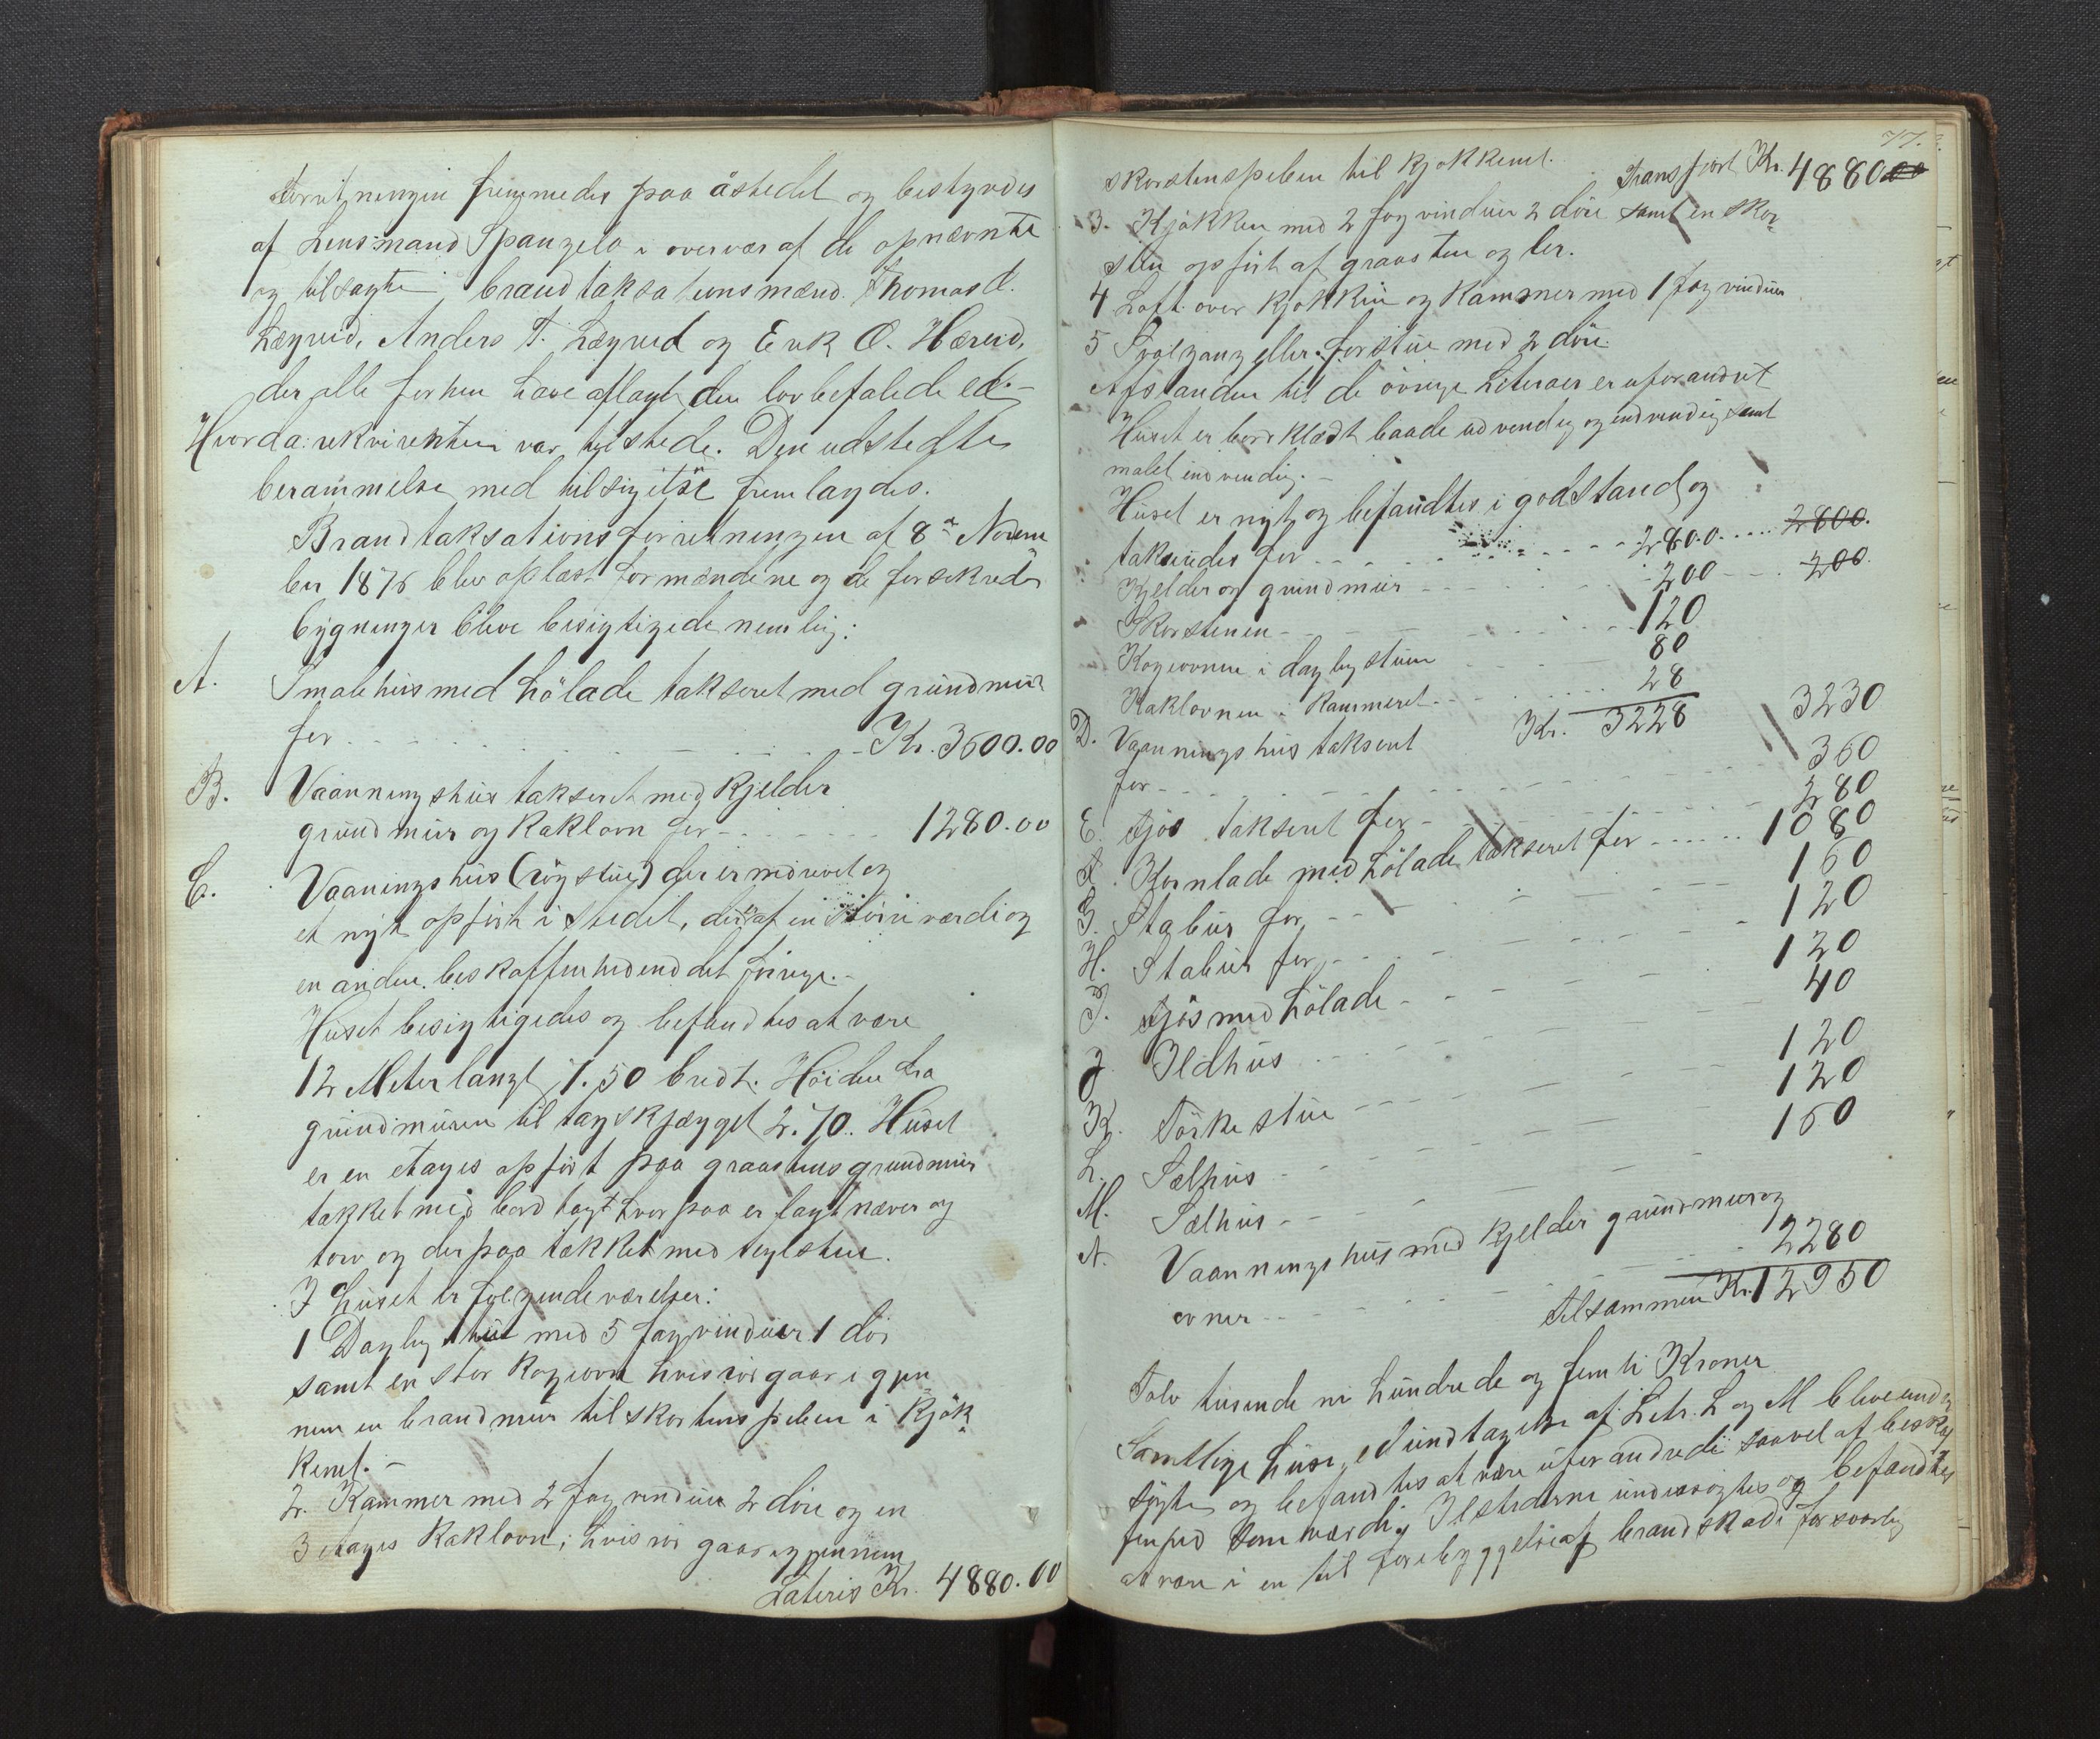 Forretningen fremmedes paa åstedet og bestyredes
af Lensmand Spangelo i overvær af de opnævnte
og tilsagte brandtaksationsmænd. Thomas A.
Lægreid, Anders T. Lægreid og Erik O. Hæreid,
der alle forhen have aflagt den lovbefalede ed.-
Hvorda: rekvirenten var tilstede. Den udstedte
berammelse med tilsigelse fremlagdes.
Brandtaksationsforretningen af 8de Novem
ber 1876 blev oplæst for mændene og de forsikrede
bygninger bleve besigtigede nemlig:
A. Smalehus med hölade takseret med grundmur
for Kr. 3600.00
B. Vaaningshus takseret med kjelder
grundmur og kaklovn for 1280.00
C. Vaaningshus (rögstue) der er nedrevet og
et nyt opfört i stedet, der er af en större værdi og
en anden beskaffenhed end det forrige.-
Huset besigtigedes og befandtes at være
12 Meter langt, 7.50 bredt. Höiden fra
grundmuren til tagskjægget 2.70. Huset
er en etages opfört paa graastens grundmur
tækket med bord tagt hvorpaa er lagt næver og
torv og derpaa tækket med teglsten.
I huset er fölgende værelser:
1 Dagligstue med 5 fag vinduer 1 dör
samt en stor kogeovn hvis rör gaar igjen=
nem en brandmur til skorstenspiben i kjök=
kenet.-
2. Kammer med 2 fag vinduer 2 döre og en
3 etages kaklovn; hvis rör gaar igjennem
Lateris Kr. 4880.00
77.
skorstenspiben til kjökkenet. Transport Kr. 4880.00
3. Kjökken med 2 fag vinduer 2 döre samt en skor=
sten opfört af graasten og ler.
4 Loft over kjökken og kammer med 1 fag vinduer
5 Svalgang eller forstue med 2 döre.
Afstanden til de övrige Literaer er uforandret
Huset er bordklædt baade udvendig og indvendig samt
malet indvendig.-
Huset er nyt og befandtes i god stand og
takseredes for 2800 2800.
Kjelder og grundmur 200 200
Skorstenen 120
Kogeovnen i dagligstuen 80
Kaklovnen i kammeret 28
Kr. 3228 3230
D. Vaaningshus takseret
for 360
E. Fjös takseret for 280
F. Kornlade med hölade takseret for 1080
G. Stabur for 160
H. Stabur for 120
I. Fjös med hölade 120
J Ildhus 40
K. Törkestue 120
L. Sælhus 120
M. Sælhus 160
N. Vaaningshus med kjelder grundmur og
ovner 2280
Tilsammen Kr. 12950
Tolv tusende ni hundrede og femti Kroner
Samtlige huse, ed undtagelse af Litr. L og M bleve under
sögte og befandtes at være uforandrede saavel af beskaf
fenhed som værdi. Ilstederne undersögtes og befandtes
at være i en til forebyggelse af brandskade forsvarlig